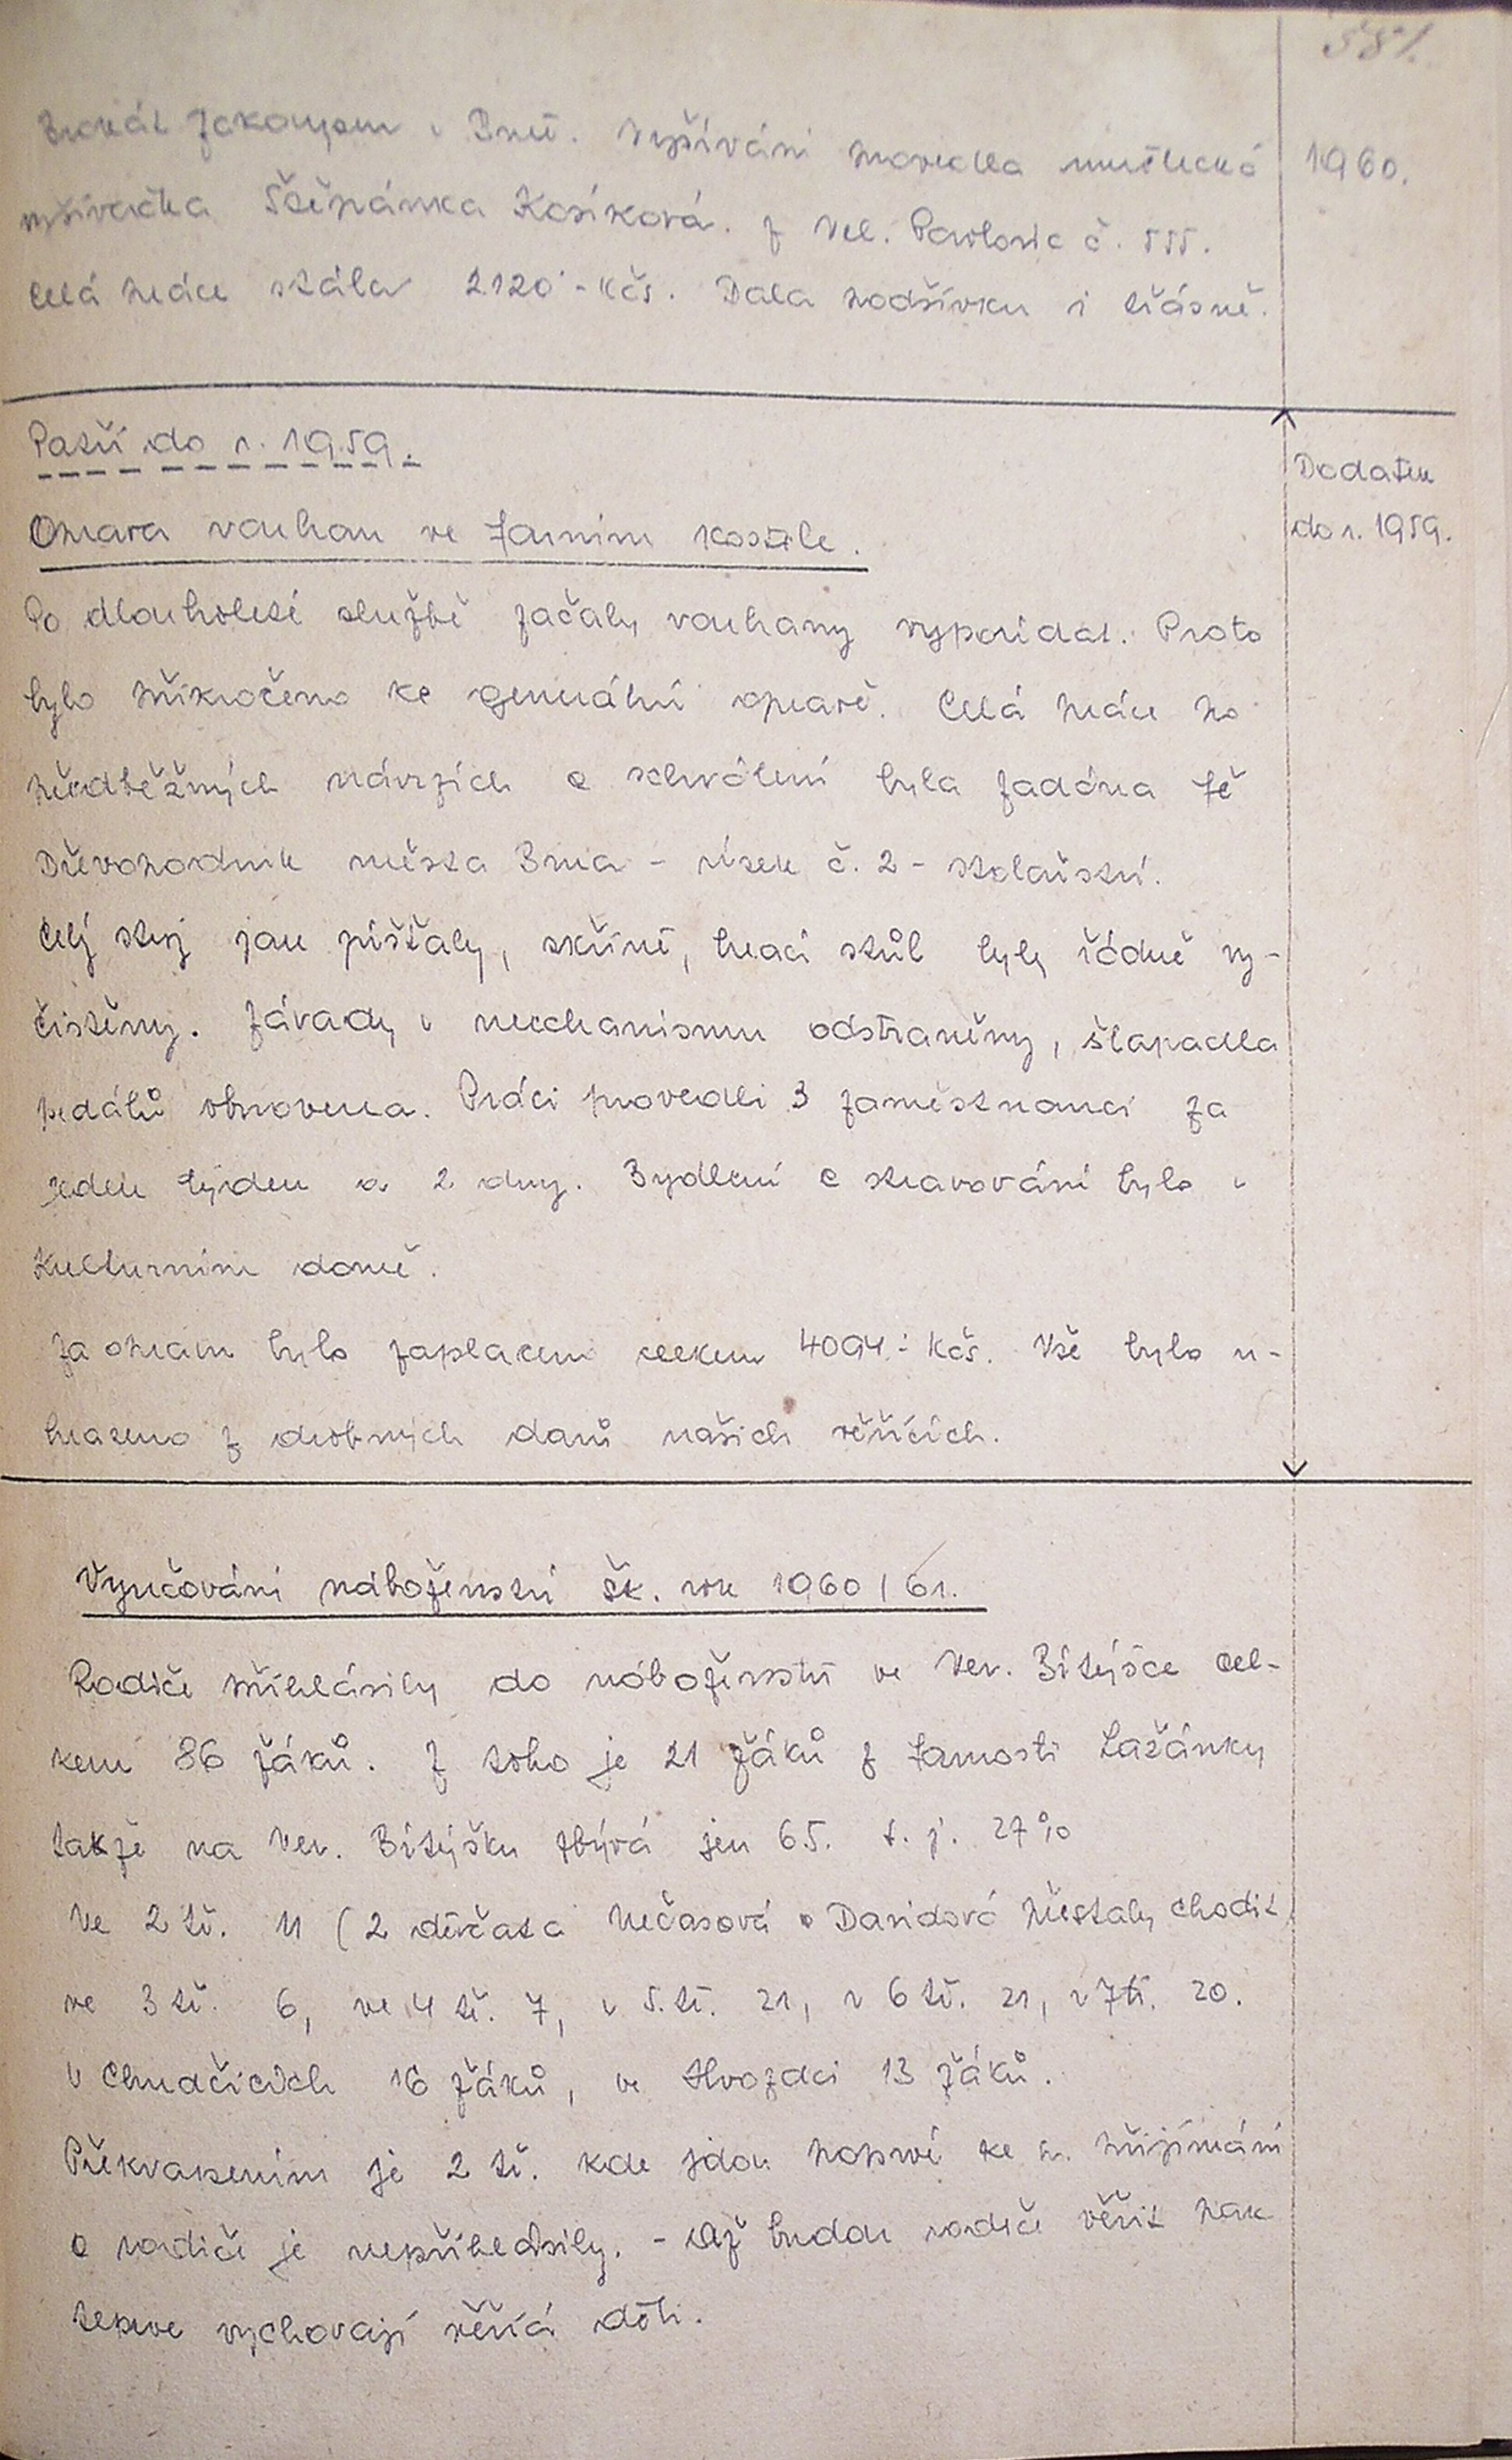 581.
Brokát zakoupen v Brně. Vyšívání provedla umělecká
1960.
vyšívačka Štěpánka Kosíková. z Vel. Pavlovic č. 555.
Celá práce stála 2120.-Kčs. Dala podšívku i třásně.
Patří do r. 1959.
Dodatek
do r. 1959.
Oprava varhan ve farním kostele.
Po dlouholeté službě začaly varhany vypovídat. Proto
bylo přikročeno ke generální opravě. Celá práce po
předběžných návrzích a schválení byla zadána fě
Dřevopodnik města Brna - úsek č. 2 - stolařství.
Celý stroj jak píšťaly, skříně, hrací stůl byly řádně vy-
čistěny. Závady v mechanismu odstraněny, šlapadla
pedálů obnovena. Práci provedli 3 zaměstnanci za
jeden týden a 2 dny. Bydlení a stravování bylo v
Kulturním domě.
Za opravu bylo zaplaceno celkem 4094.- Kčs. Vše bylo u-
hrazeno z drobných darů našich věřících.
Vyučování náboženství šk. rok 1960/61.
Rodiče přihlásily do náboženství ve Ver. Bítýšce cel-
kem 86 žáků. Z toho je 21 žáků z farnosti Lažánky
takže na Ver. Bítýšku zbývá jen 65. t. j. 27%
Ve 2 tř. 11 (2 děvčata Nečasová a Davidová přestaly chodit,
ve 3 tř. 6, ve 4 tř. 7, v 5. tř. 21, v 6 tř. 21, v 7 tř. 20.
V Chudčicích 16 žáků, ve Hvozdci 13 žáků.
Překvapením je 2 tř. kde jdou poprvé ke sv. přijímání
a rodiče je nepřihlásily. - Až budou rodiče věřit pak
teprve vychovají věřící děti.